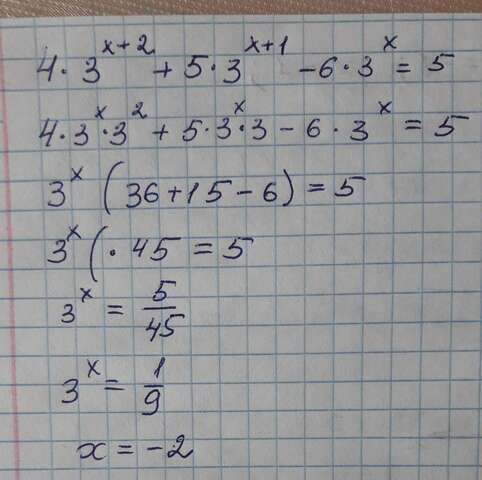 4·3^{x+2} + 5·3^{x+1} - 6·3^x = 5
4·3^x·3^2 + 5·3^x·3 - 6·3^x = 5
3^x (36+15-6) = 5
3^x (·45 = 5
3^x = 5/45
3^x = 1/9
x = -2